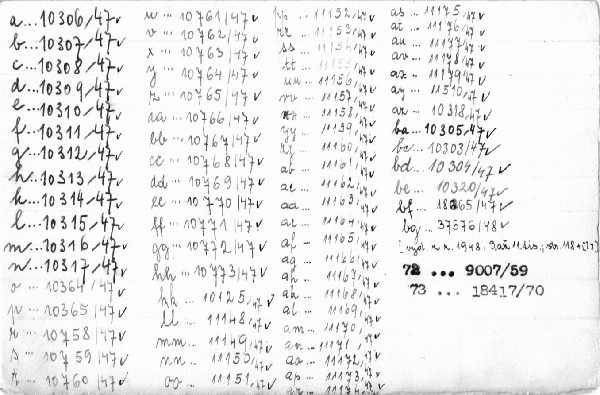 a...10306/47✓
b...10307/47✓
c...10308/47✓
d...10309/47✓
e...10310/47✓
f...10311/47✓
g...10312/47✓
h...10313/47✓
k...10314/47✓
l...10315/47✓
m...10316/47✓
n...10317/47✓
o...10364/47✓
p...10365/47✓
r...10758/47✓
s...10759/47✓
t...10760/47✓
u...10761/47✓
v...10762/47✓
x...10763/47✓
y...10764/47✓
z...10765/47✓
aa...10766/47✓
bb...10767/47✓
cc...10768/47✓
dd...10769/47✓
ee...10770/47✓
ff...10771/47✓
gg...10772/47✓
hh...10773/47✓
kk...10125/47✓
ll...11148/47✓
mm...11149/47✓
nn...11150/47✓
oo...11151/47✓
pp...11152/47✓
rr...11153/47✓
ss...11154/47✓
tt...11155/47✓
uu...11156/47✓
vv...11157/47✓
xx...11158/47✓
yy...11159/47✓
zz...11160/47✓
ab...11161/47✓
ac...11162/47✓
11163/47✓
11164/47✓
af...11165/47✓
ag...11166/47✓
ah...11167/47✓
ak...11168/47✓
al...11169/47✓
am...11170/47✓
an...11171/47✓
ao...11172/47✓
ap...11173/47✓
ar...11174/47✓
as...11175/47✓
at...11176/47✓
au...11177/47✓
av...11178/47✓
ax...11179/47✓
ay...11510/47✓
az...10318/47✓
ba...10305/47✓
bc...10303/47✓
bd...10304/47✓
be...10320/47✓
bf...18265/47✓
bg...37576/48✓
1948.
72 ... 9007/59
73 ... 18417/70